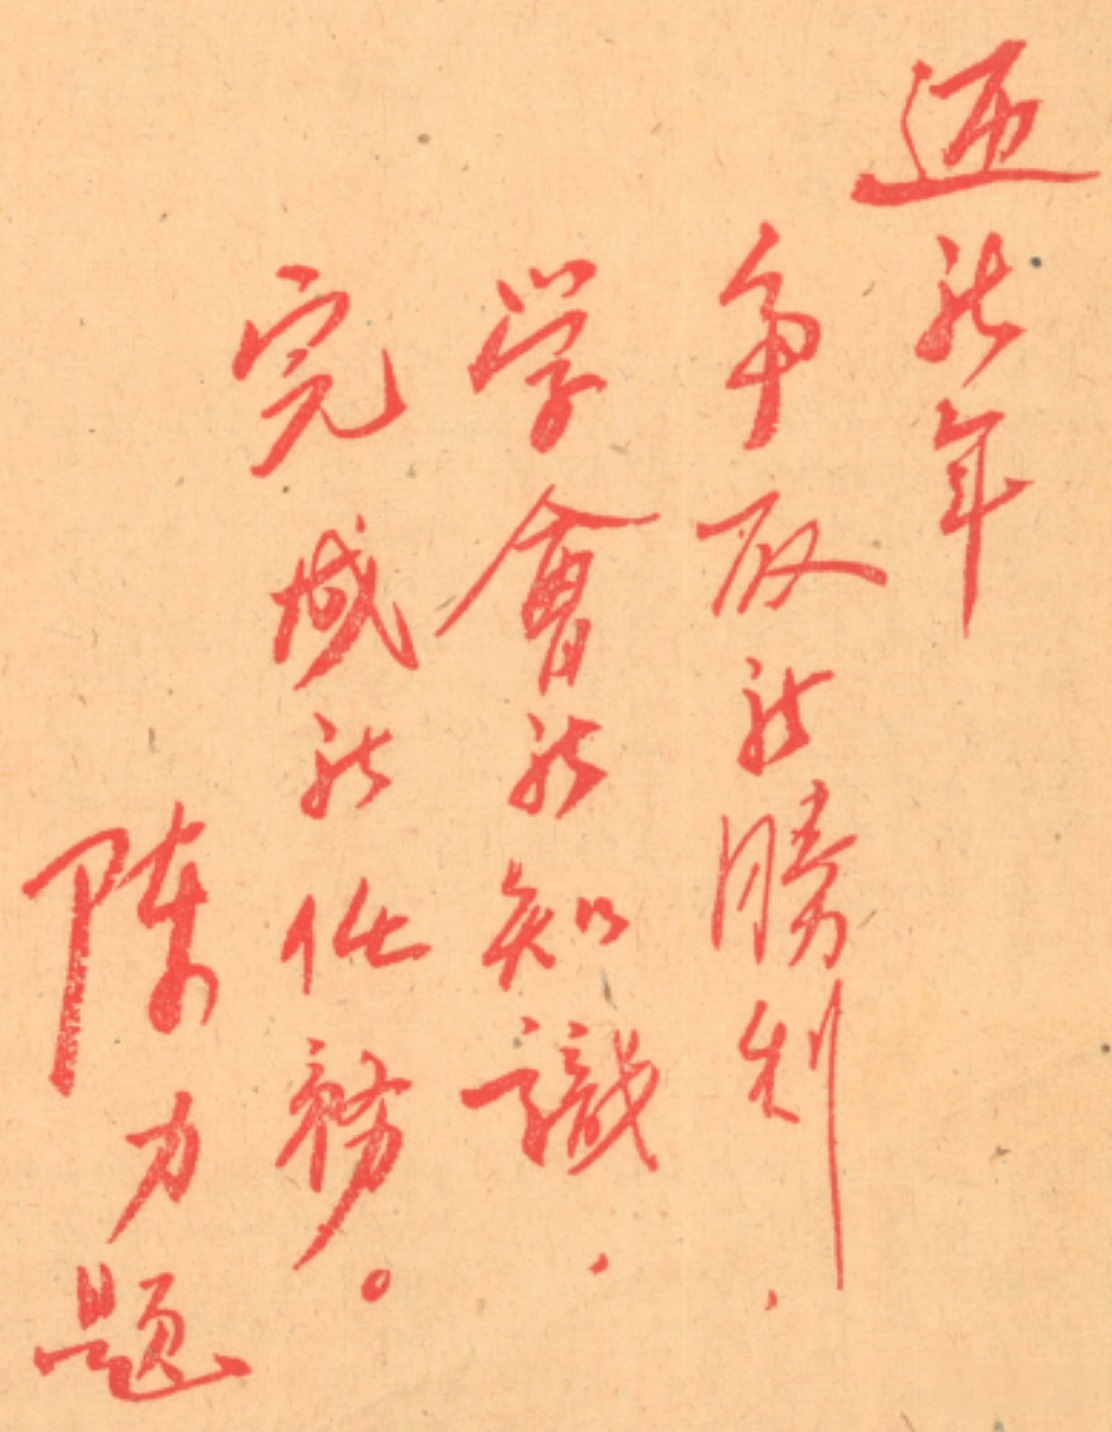 迎新年
争取新勝利，
学會新知識，
完成新任務。
陳力題